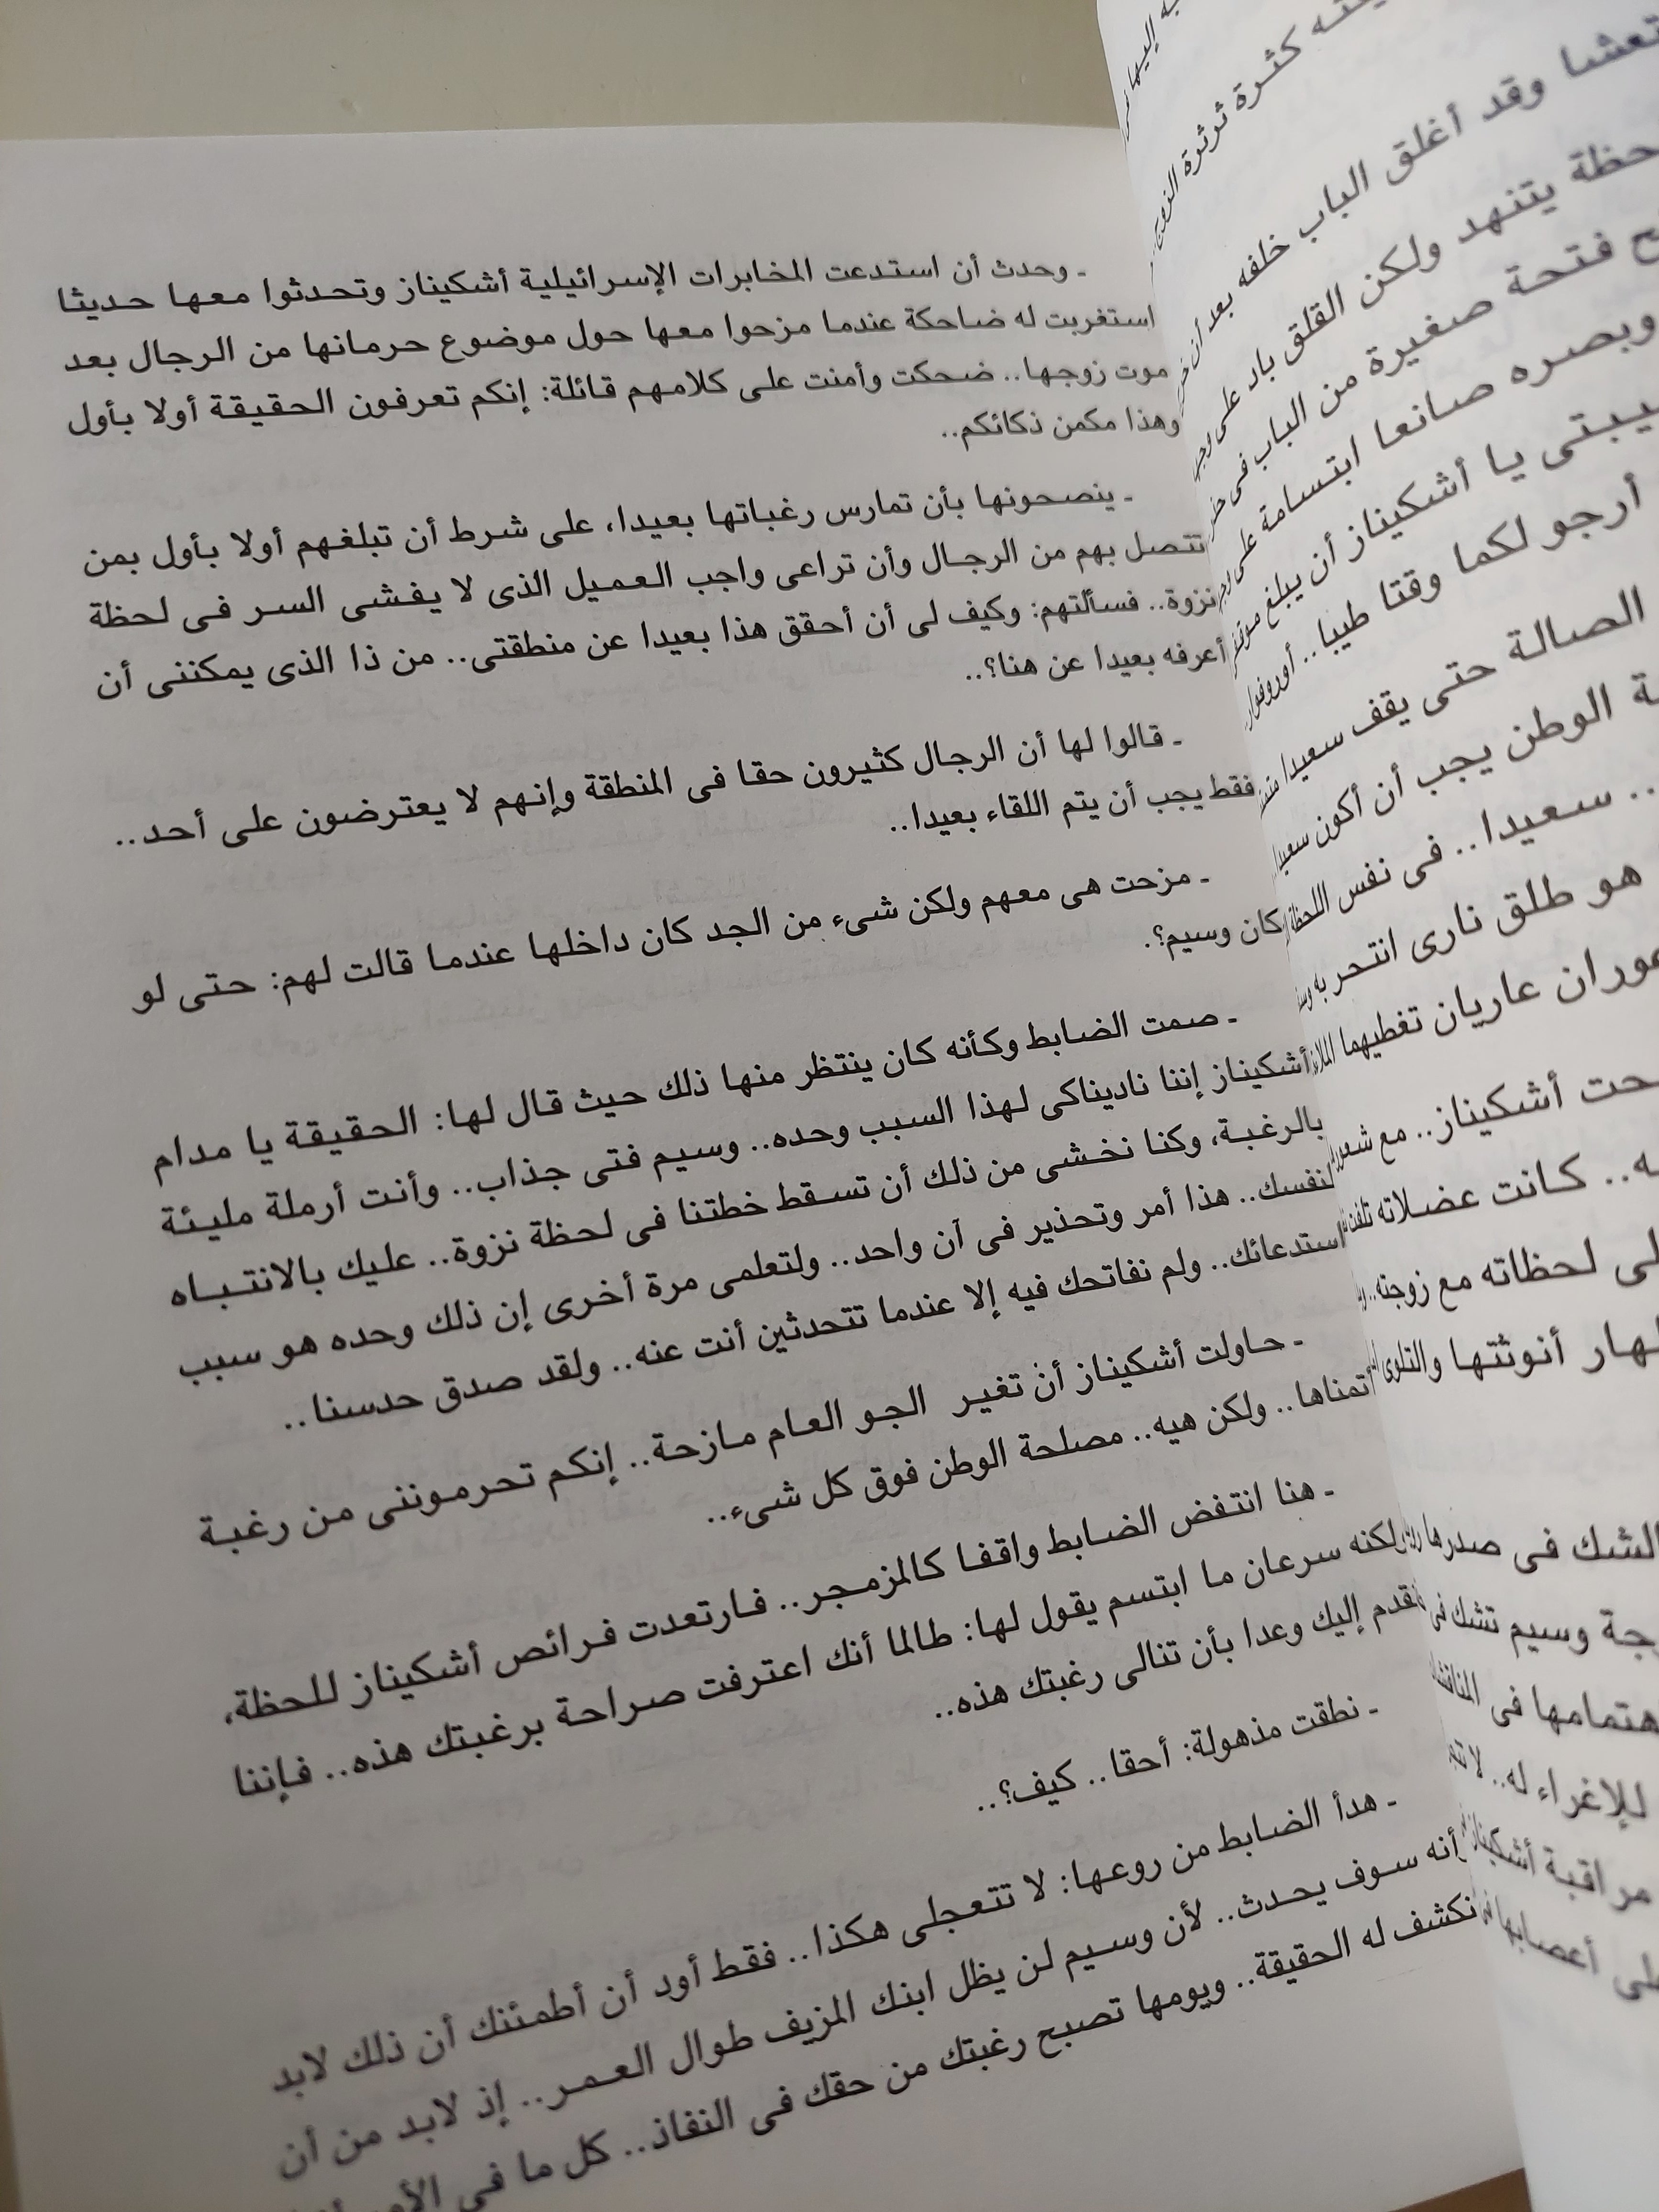 ـ وحدث أن استدعت المخابرات الإسرائيلية أشكيناز وتحدثوا معها حديثا
استغربت له ضاحكة عندما مزحوا معها حول موضوع حرمانها من الرجال بعد
موت زوجها.. ضحكت وأمنت على كلامهم قائلة: إنكم تعرفون الحقيقة أولا بأول
وهذا مكمن ذكائكم..
ـ ينصحونها بأن تمارس رغباتها بعيدا، على شرط أن تبلغهم أولا بأول بمن
تتصل بهم من الرجال وأن تراعى واجب العميل الذى لا يفشى السر فى لحظة
نزوة.. فسألتهم: وكيف لى أن أحقق هذا بعيدا عن منطقتى.. من ذا الذى يمكننى أن
أعرفه بعيدا عن هنا؟..
ـ قالوا لها أن الرجال كثيرون حقا فى المنطقة وإنهم لا يعترضون على أحد..
فقط يجب أن يتم اللقاء بعيدا..
ـ مزحت هى معهم ولكن شىء من الجد كان داخلها عندما قالت لهم: حتى لو
كان وسيم؟.
ـ صمت الضابط وكأنه كان ينتظر منها ذلك حيث قال لها: الحقيقة يا مدام
أشكيناز إننا ناديناكى لهذا السبب وحده.. وسيم فتى جذاب.. وأنت أرملة مليئة
بالرغبة، وكنا نخشى من ذلك أن تسقط خطتنا فى لحظة نزوة.. عليك بالانتباه
لنفسك.. هذا أمر وتحذير فى آن واحد.. ولتعلمى مرة أخرى إن ذلك وحده هو سبب
استدعائك.. ولم نفاتحك فيه إلا عندما تتحدثين أنت عنه.. ولقد صدق حدسنا..
ـ حاولت أشكيناز أن تغير الجو العام مازحة.. إنكم تحرموننى من رغبة
أتمناها.. ولكن هيه.. مصلحة الوطن فوق كل شىء..
ـ هنا انتفض الضابط واقفا كالمزمجر.. فارتعدت فرائص أشكيناز للحظة،
ولكنه سرعان ما ابتسم يقول لها: طالما أنك اعترفت صراحة برغبتك هذه.. فإننا
نقدم إليك وعدا بأن تنالى رغبتك هذه..
ـ نطقت مذهولة: أحقا.. كيف؟..
ـ هدأ الضابط من روعها: لا تتعجلى هكذا.. فقط أود أن أطمئنك أن ذلك لابد
أنه سوف يحدث.. لأن وسيم لن يظل ابنك المزيف طوال العمر.. إذ لابد من أن
نكشف له الحقيقة.. ويومها تصبح رغبتك من حقك فى النفاذ.. كل ما فى الأمر
كثرة ثرثرة
وقد أغلق الباب خلفه بعد أن
يتنهد ولكن القلق باد على
فتحة صغيرة من الباب فى
وبصره صانعا ابتسامة على
يا أشكيناز أن يبلغ
أرجو لكما وقتا طيبا.. أورفوار
الصالة حتى يقف سعيدا
الوطن يجب أن أكون سعيدا
.. سعيدا.. فى نفس اللحظة
هو طلق نارى انتحر به
عاريان تغطيهما
أشكيناز.. مع
كانت عضلاته
لحظاته مع زوجته..
أنوثتها والتلوى
الشك فى صدرها
وسيم تشك فى
فى المناقشة
للإغراء له..
مراقبة أشكيناز
أعصابها